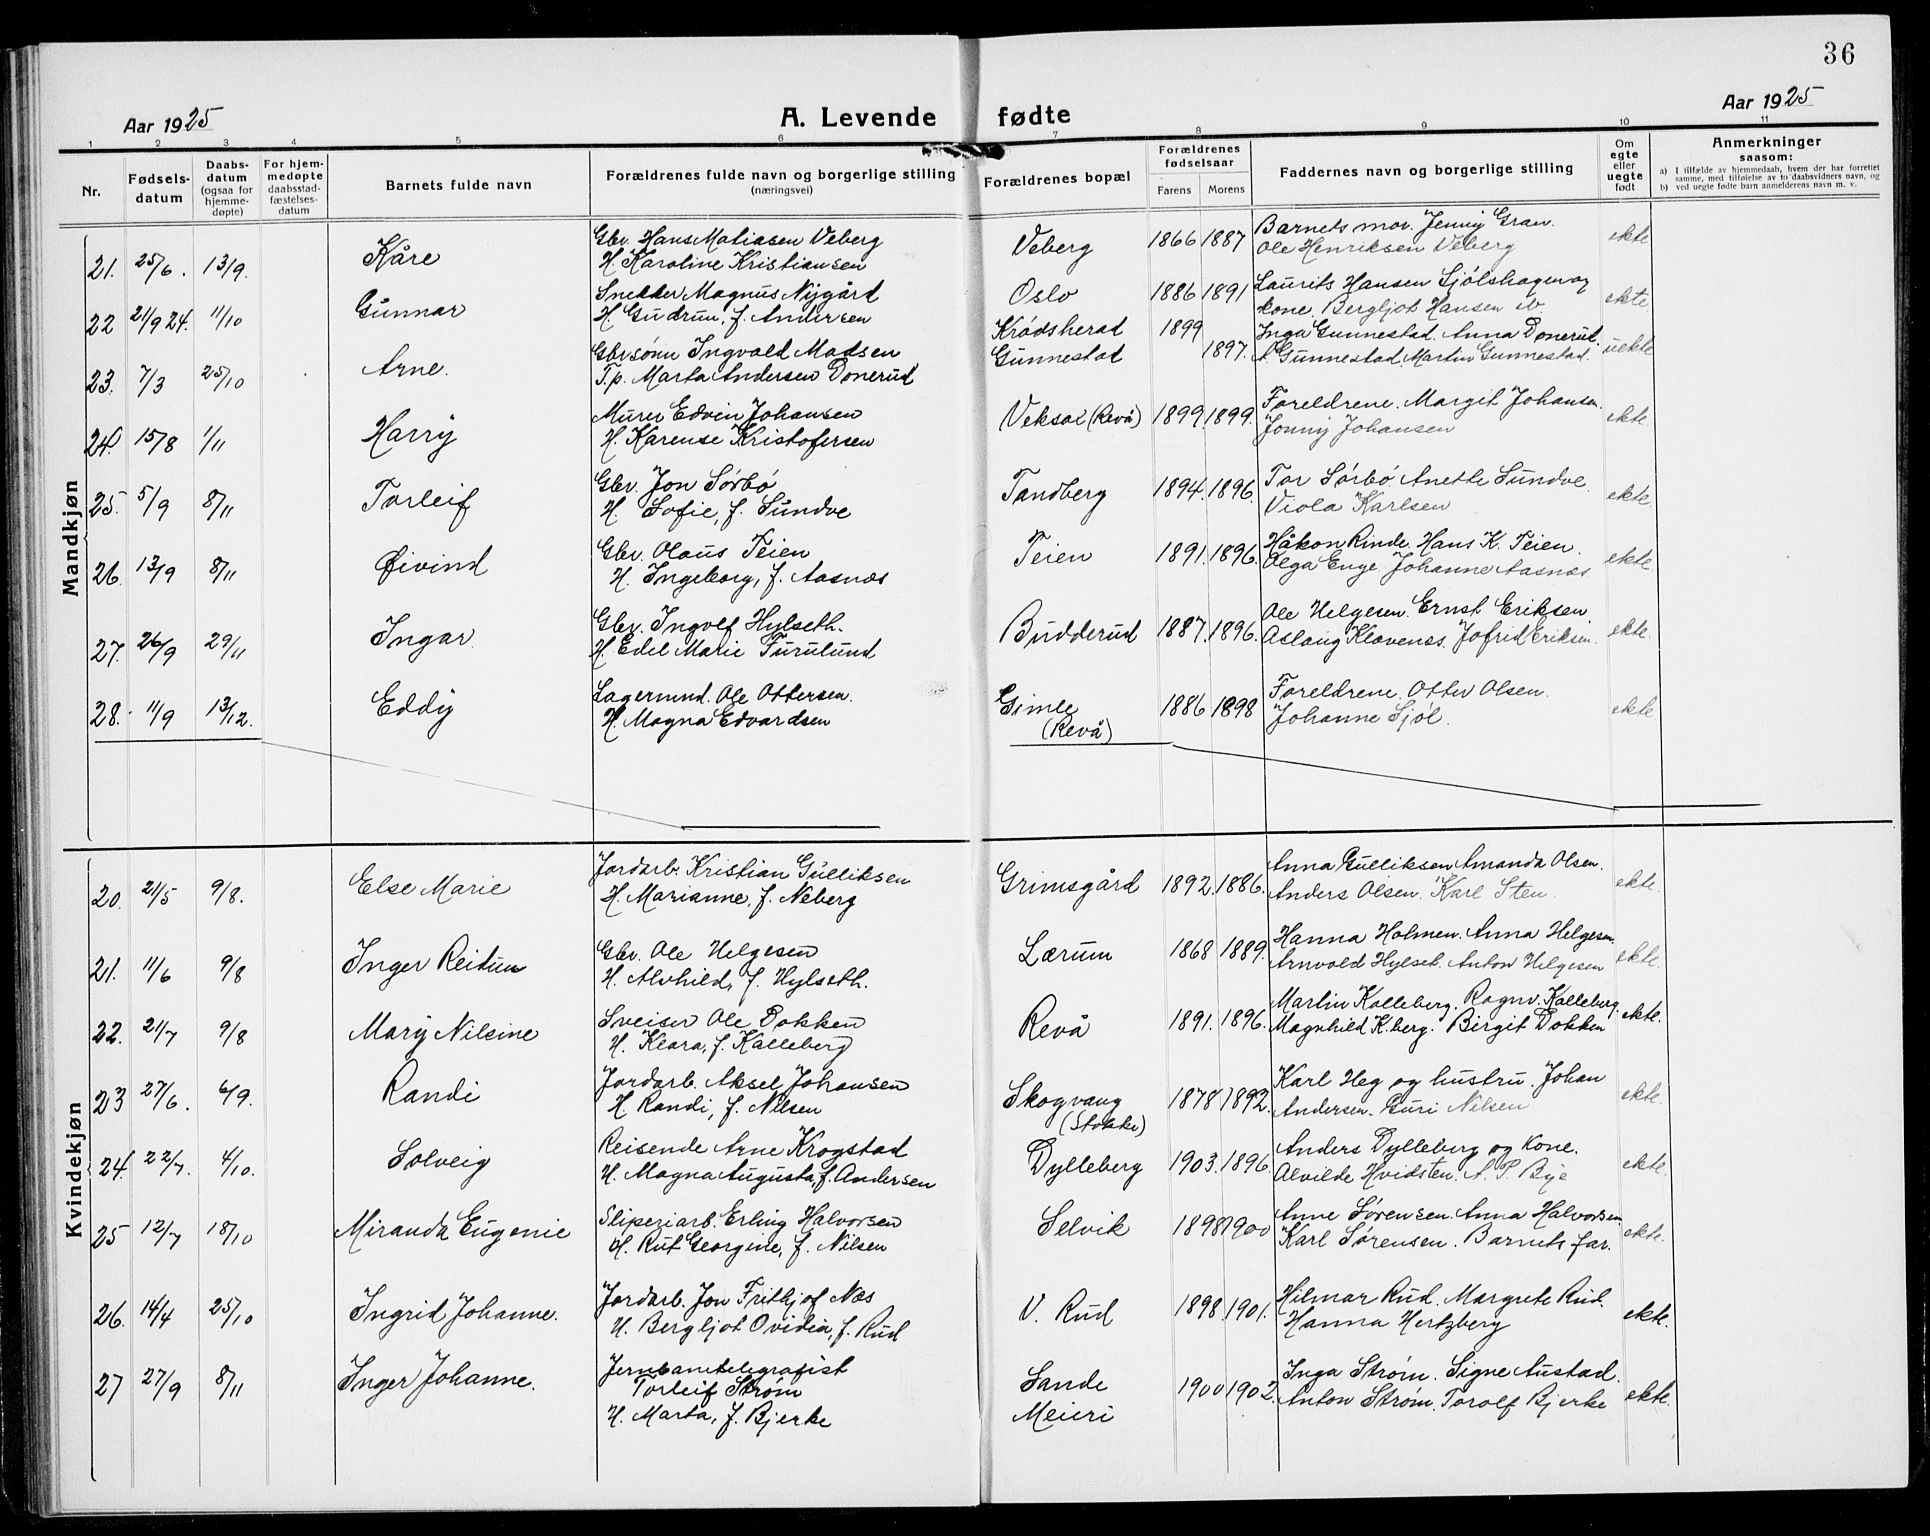 36
Aar 1925
A. Levende fødte
Aar 1925
1 2 3 4 5 6 7 8 9 10 11
Nr.
Fødsels-
datum
Daabs-
datum
(ogsaa for
hjemme-
døpte)
For hjem-
medøpte
daabsstad-
fæstelses-
datum
Barnets fulde navn
Forældrenes fulde navn og borgerlige stilling
(næringsvei)
Forældrenes bopæl
Forældrenes
fødselsaar
Farens Morens
Faddernes navn og borgerlige stilling
Om
egte
eller
uegte
født
Anmerkninger
saasom:
a) I tilfælde av hjemmedaab, hvem der har forrettet
samme, med tilføielse av to daabsvidners navn, og
b) ved uegte fødte barn anmelderens navn m. v.
Mandkjøn
21. 25/6. 13/9. Kåre
Gbr. Hans Matiasen Veberg
H. Karoline Kristiansen
Veberg 1866 1887
Barnets mor. Jenny Gran.
Ole Henriksen Veberg
ekte
22 21/9 24. 11/10 Gunnar
Snekker Magnus Nygård
H. Gudrun, f. Andersen
Oslo 1886 1891
Laurits Hansen Sjølshagen og
kone. Bergljot Hansen
ekte
23. 7/3 25/10 Arne.
Gbrsønn Ingvald Madsen
T.p. Marta Andersen Donerud
Krødsherad 1899
Gunnestad 1897.
Inga Gunnestad. Anna Donerud.
A. Gunnestad. Martin Gunnestad.
uekte
24. 15/8 1/11 Harry
Murer Edvin Johansen
H. Karense Kristofersen
Veksal (Revå) 1899. 1899.
Foreldrene. Margit Johansen.
Jonny Johansen
ekte.
25. 5/9 8/11 Torleif
Gbr. Jon Sørbø
H. Sofie, f. Sundve
Tandberg 1894. 1896.
Tor Sørbø. Anette Sundve.
Viola Karlsen
ekte.
26. 13/9 8/11 Øivind
Gbr. Olaus Teien
H. Ingeborg, f. Aasnæs
Teien 1891. 1896.
Håkon Rinde. Hans K. Teien.
Olga Enge Johanne Aasnæs
ekte.
27. 26/9 29/11 Ingar
Gbr. Ingolf Hylseth.
H. Edel Marie Furulund
Budderud 1887. 1896.
Ole Helgesen. Ernst Eriksen.
Aslaug Klavenes. Jofrid Eriksen.
ekte.
28. 11/9 13/12. Eddy
Lagermnd. Ole Ottersen.
H. Magna Edvardsen
Gimle 1886 1898
(Revå)
Foreldrene. Otter Olsen.
Johanne Sjøl.
ekte
Kvindekjøn
20. 21/5 9/8. Else Marie
Jordarb. Kristian Gulliksen
H. Marianne, f. Neberg
Grimsgård 1892. 1886.
Anna Gulliksen Amanda Olsen.
Anders Olsen. Karl Sten.
ekte.
21. 11/6 9/8 Inger Reidun
Gbr. Ole Helgesen
H. Alvhild, f. Hylseth.
Lærum 1868 1889.
Hanna Holmen. Anna Helgesen.
Arnvald Hylset. Anton Helgesen
ekte.
22. 21/7 9/8 Mary Nilsine
Sveiser Ole Dokken
H. Klara, f. Kalleberg
Revå 1891. 1896.
Martin Kalleberg. Ragnv. Kalleberg.
Magnhild K.berg. Birgit Dokken
ekte.
23 27/6. 6/9. Randi
Jordarb. Aksel Johansen
H. Randi, f. Nilsen
Skogvang 1878 1892.
(Stokke)
Karl Heg og hustru. Johan
Andersen. Guri Nilsen
ekte.
24. 22/7. 4/10. Solveig
Reisende Arne Krogstad
H. Magna Augusta, f. Andersen
Dylleberg 1903. 1896.
Anders Dylleberg og kone.
Alvilde Hvidsten. A. P. Bye
ekte.
25 12/7 18/10 Miranda Eugenie
Sliperiarb. Erling Halvorsen
H. Rut Georgine, f. Nilsen
Selvik 1898 1900
Anne Sørensen. Anna Halvorsen
Karl Sørensen. Barnets far.
ekte.
26. 14/4 25/10 Ingrid Johanne.
Jordarb. Jon Frithjof Næs
H. Bergljot Ovidia, f. Rud
V. Rud 1898 1901.
Hilmar Rud. Margrete Rud.
Hanna Hertzberg
ekte.
27 27/9 8/11 Inger Johanne.
Jernbanetelegrafist
Torleif Strøm
H. Marta, f. Bjerke
Sande 1900 1902.
Meieri
Inga Strøm. Signe Austad.
Anton Strøm. Torolf Bjerke
ekte.